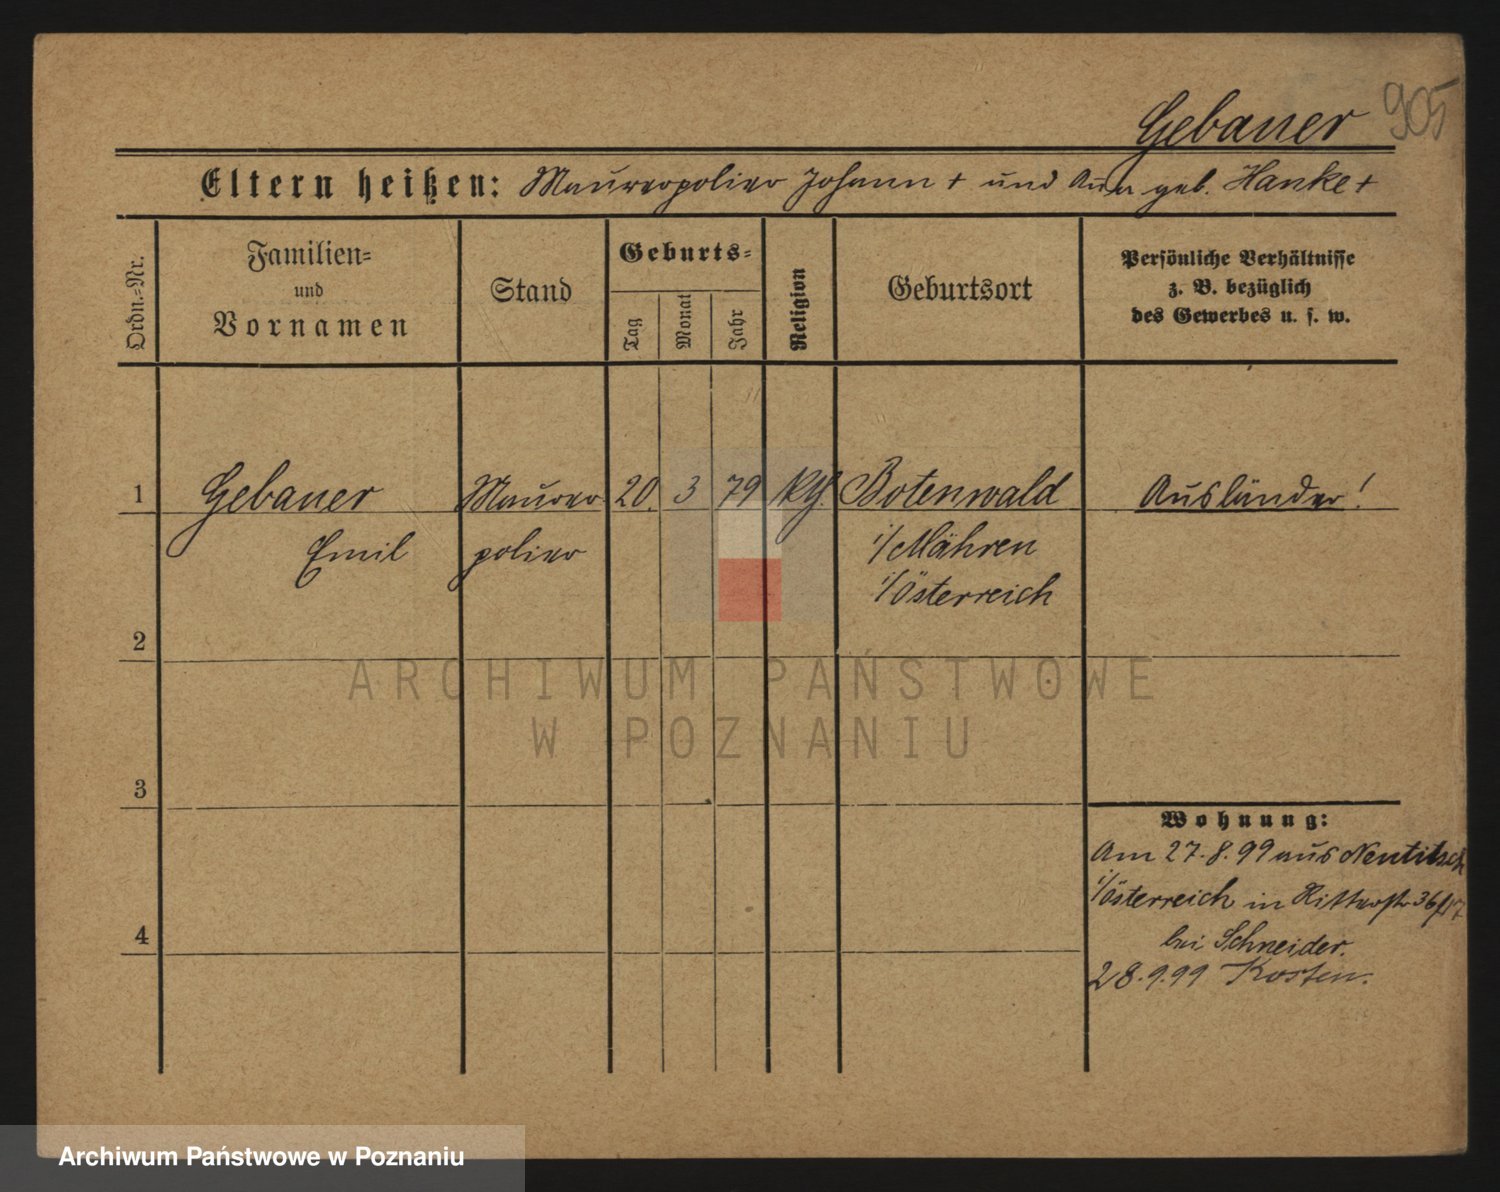 Gebauer 905
Eltern heißen: Maurerpolier Johann + und Anna geb. Hanke +
Ordn.-Nr.
Familien-
und
Vornamen
Stand
Geburts-
Tag
Monat
Jahr
Religion
Geburtsort
Persönliche Verhältnisse
z. B. bezüglich
des Gewerbes u. s. w.
1 Gebauer Maurer 20. 3 79 kth. Botenwald Ausländer!
Emil polier i/Mähren
i/Österreich
2
ARCHIWUM PAŃSTWOWE
W POZNANIU
3
Wohnung:
Am 27.8.99 aus Neutitsch
i/Österreich in Ritterstr 36
4
bei Schneider.
28.9.99 Kosten.
Archiwum Państwowe w Poznaniu